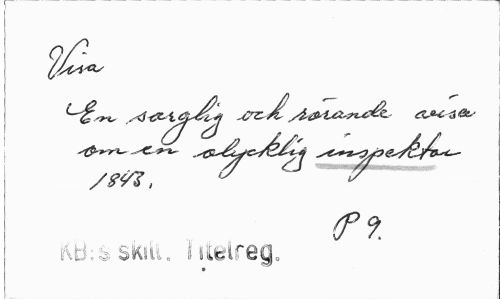 Visa
En sorglig och rörande visa
om en olycklig inspektor
1843.
P 9.
KB:s skill. Titelreg.